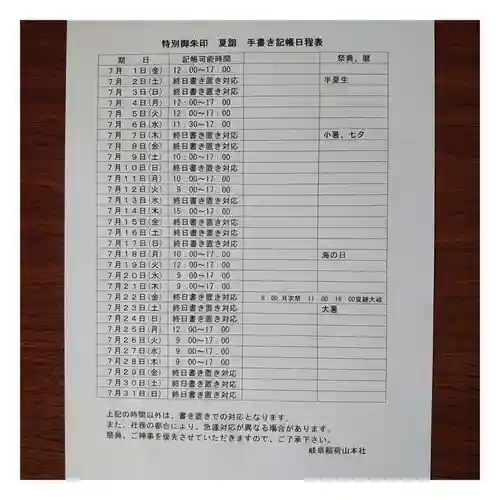 特別御朱印 夏詣 手書き記帳日程表
期 日 記帳可能時間 祭典、暦
7月 1日(金) 12:00〜17:00
7月 2日(土) 終日書き置き対応 半夏生
7月 3日(日) 終日書き置き対応
7月 4日(月) 12:00〜17:00
7月 5日(火) 12:00〜17:00
7月 6日(水) 11:30〜17:00
7月 7日(木) 終日書き置き対応 小暑、七夕
7月 8日(金) 終日書き置き対応
7月 9日(土) 10:00〜17:00
7月10日(日) 終日書き置き対応
7月11日(月) 10:00〜17:00
7月12日(火) 9:00〜17:00
7月13日(水) 終日書き置き対応
7月14日(木) 15:00〜17:00
7月15日(金) 終日書き置き対応
7月16日(土) 終日書き置き対応
7月17日(日) 終日書き置き対応
7月18日(月) 10:00〜17:00 海の日
7月19日(火) 12:00〜17:00
7月20日(水) 9:00〜17:00
7月21日(木) 9:00〜17:00
7月22日(金) 終日書き置き対応 8:00月次祭 11:00 16:00夏越大祓
7月23日(土) 終日書き置き対応 大暑
7月24日(日) 終日書き置き対応
7月25日(月) 12:00〜17:00
7月26日(火) 9:00〜17:00
7月27日(水) 9:00〜17:00
7月28日(木) 9:00〜17:00
7月29日(金) 終日書き置き対応
7月30日(土) 終日書き置き対応
7月31日(日) 終日書き置き対応
上記の時間以外は、書き置きでの対応となります。
また、社務の都合により、急遽対応が異なる場合があります。
祭典、ご神事を優先させていただきますので、ご了承下さい。
岐阜稲荷山本社